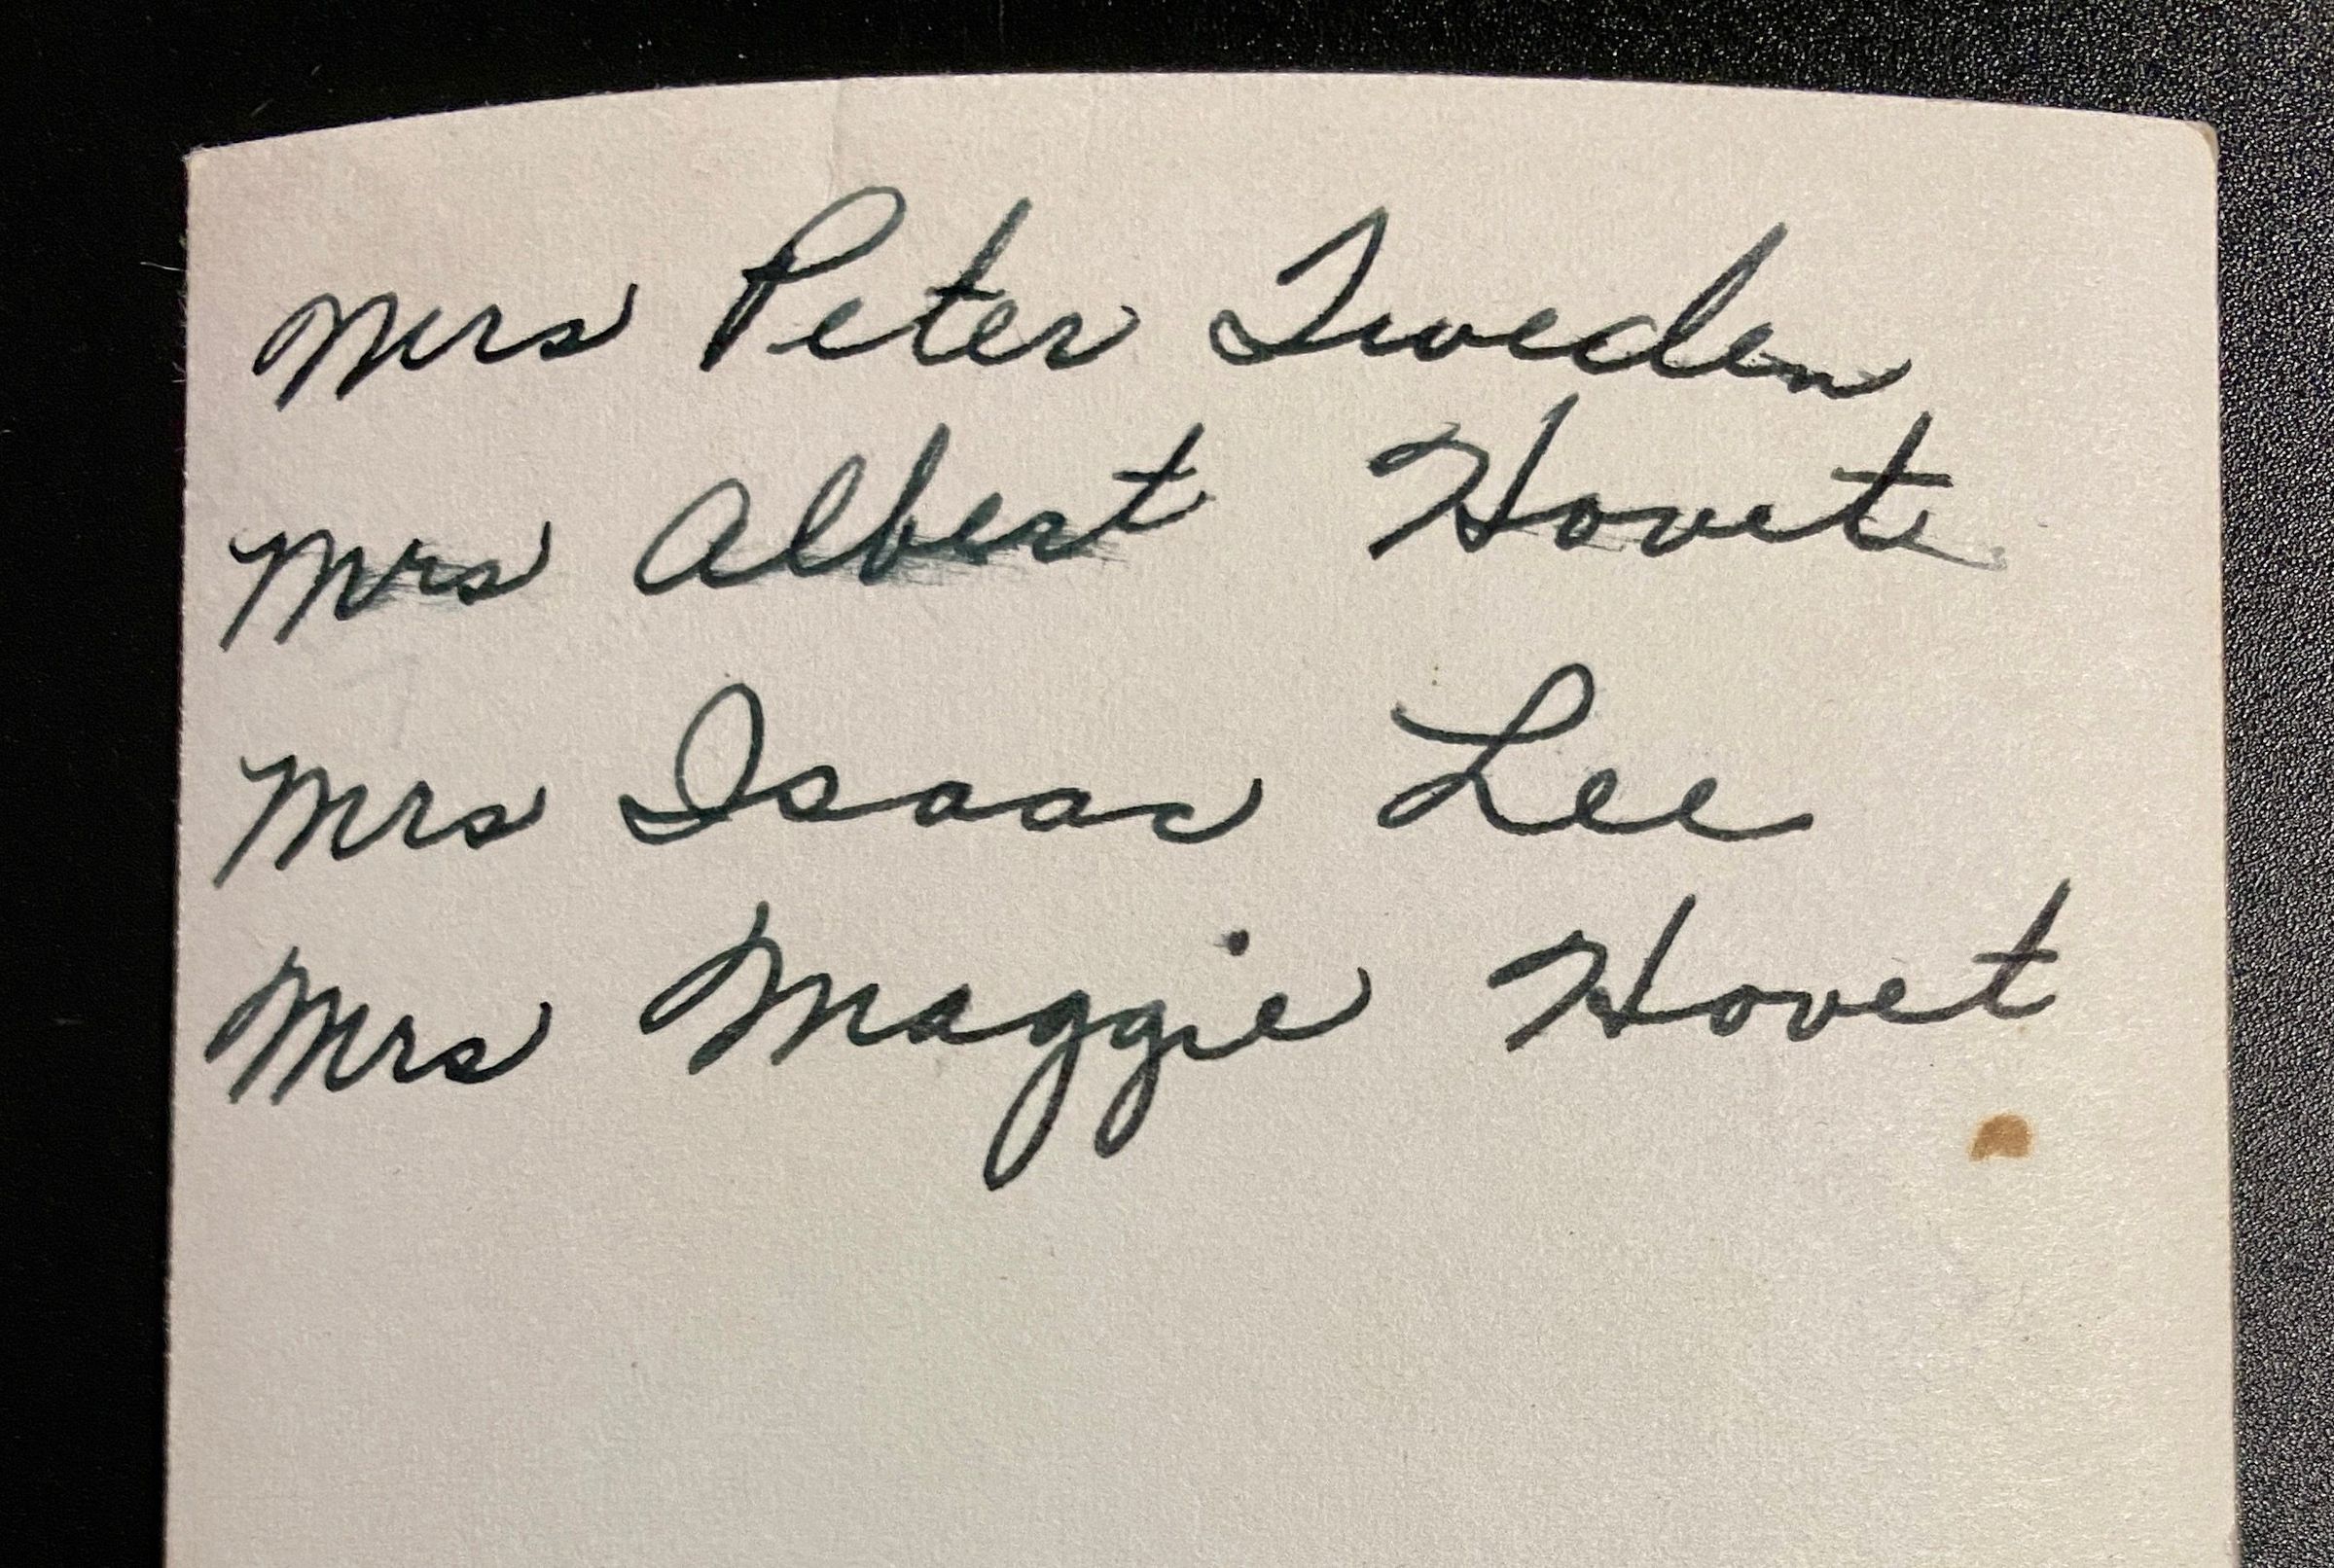 Mrs Peter Tweden
Mrs Albert Hovet
Mrs Isaac Lee
Mrs Maggie Hovet